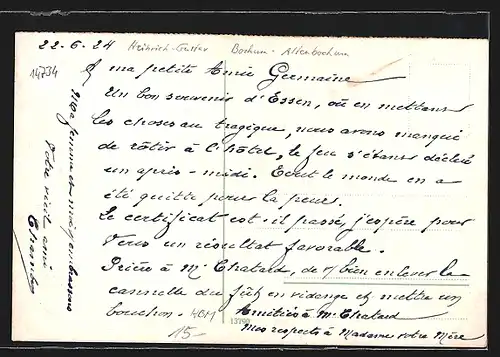 22-6-24 Heinrich-Gustav Bochum-Altenbochum
14734
À ma petite Amie Germaine
Un bon souvenir d'Essen, où en mettant
les choses au tragique, nous avons manqué
de rôtir à l'hôtel, le feu s'étant déclaré
un après-midi. Tout le monde en a
été quitte pour la peur.
Le certificat est-il passé, j'espère pour
Vous un résultat favorable.
Prière à Mr Chatard, de bien enlever la
cannelle du fût en vidange et mettre un
bouchon. Amitiés à Mr Chatard
Mes respects à Madame votre Mère
4GM
15-
13790
Ma femme et moi embrassons
Votre vieil ami